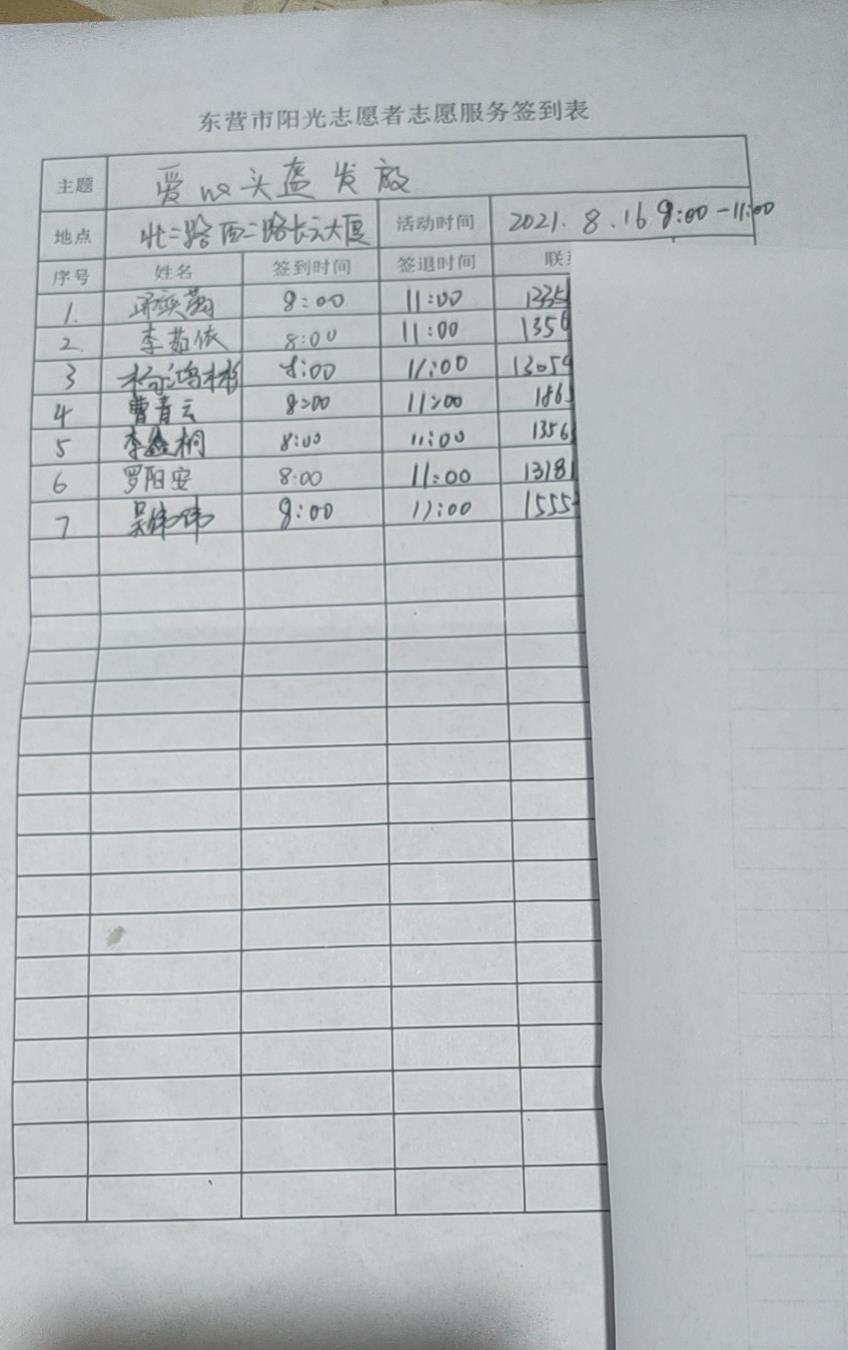 东营市阳光志愿者志愿服务签到表
主题 爱心头盔发放
地点 北二路西二路长云大厦 活动时间 2021.8.16 8:00-11:00
序号 姓名 签到时间 签退时间 联
1. 8:00 11:00 1335
2. 李茹依 8:00 11:00 1356
3 杨鸿彬 8:00 11:00 13054
4 曹青云 8:00 11:00 186
5 李鑫桐 8:00 11:00 1356
6 罗阳安 8:00 11:00 13181
7 吴伟伟 8:00 11:00 1555